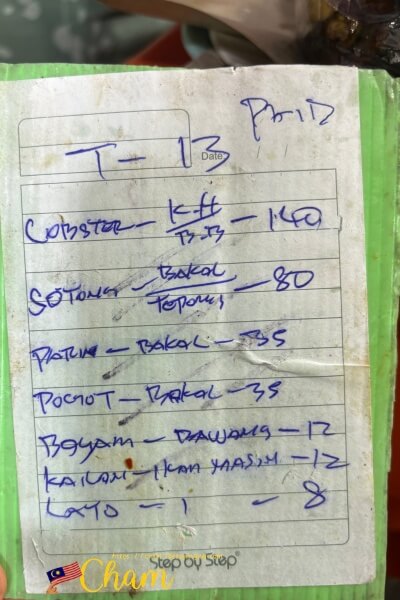 PAID
T - 13
Date
LOBSTER - K.H / B.B - 140
SOTONG - BAKAL / TEPONG - 80
PARIN - BAKAL - 35
POCIOT - BAKAL - 35
BAYAM - BAWANG - 12
KAILAN - IKAN MASIN - 12
LATO - 1 - 8
Step by Step
Cham